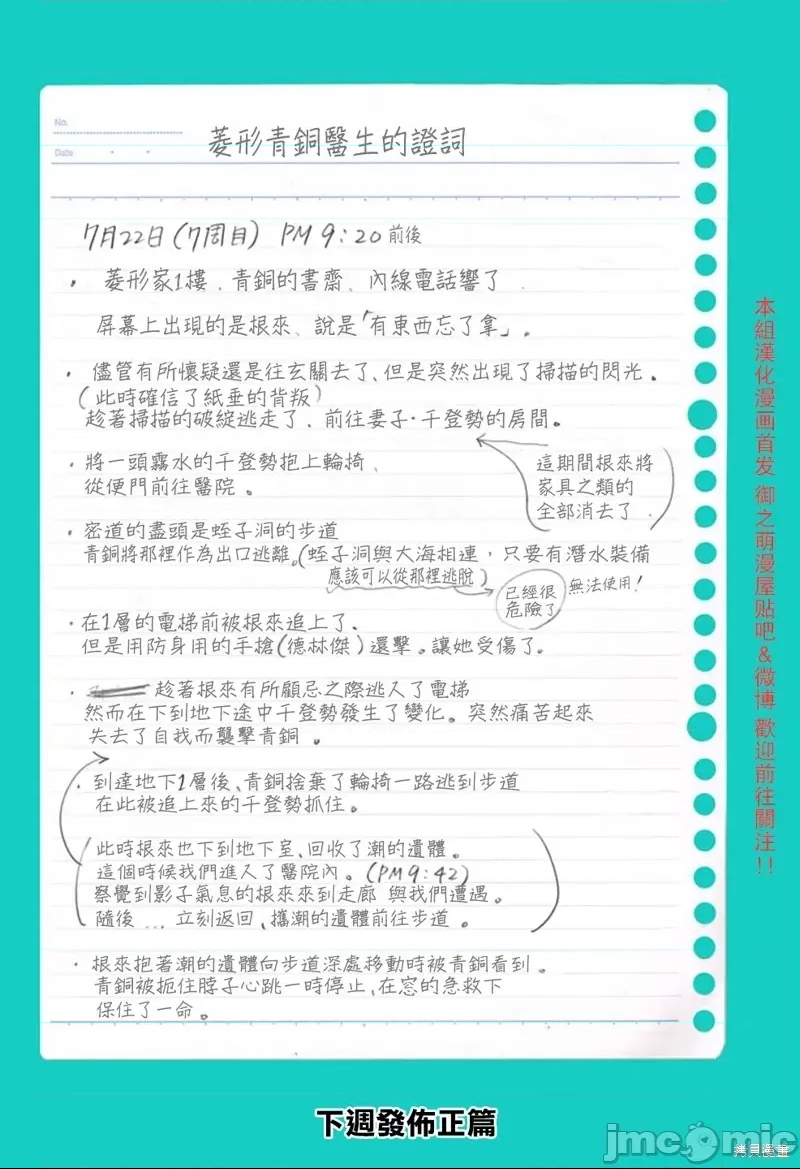 No.
Date
菱形青銅醫生的證詞
7月22日(7周目) PM 9:20前後
・菱形家1樓、青銅的書齋、內線電話響了
屏幕上出現的是根來、說是「有東西忘了拿」。
・儘管有所懷疑還是往玄關去了、但是突然出現了掃描的閃光。
(此時確信了紙垂的背叛)
趁著掃描的破綻逃走了、前往妻子・千登勢的房間。
・將一頭霧水的千登勢抱上輪椅、
從便門前往醫院。
這期間根來將
家具之類的
全部消去了.
・密道的盡頭是蛭子洞的步道
青銅將那裡作為出口逃離。(蛭子洞與大海相連，只要有潛水裝備
應該可以從那裡逃脫)
已經很
危險了
無法使用!
・在1層的電梯前被根來追上了、
但是用防身用的手槍(德林傑)還擊。讓她受傷了.
・趁著根來有所顧忌之際逃入了電梯
然而在下到地下途中千登勢發生了變化。突然痛苦起來
失去了自我而襲擊青銅。
・到達地下1層後、青銅捨棄了輪椅一路逃到步道
在此被追上來的千登勢抓住。
此時根來也下到地下室、回收了潮的遺體。
這個時候我們進入了醫院內。(PM9:42)
察覺到影子氣息的根來來到走廊 與我們遭遇。
隨後…立刻返回、攜潮的遺體前往步道。
・根來抱著潮的遺體向步道深處移動時被青銅看到。
青銅被扼住脖子心跳一時停止、在窓的急救下
保住了一命。
本組漢化漫画首发 御之萌漫屋贴吧&微博 歡迎前往關注!!
下週發佈正篇
jmcomic
拷貝漫畫